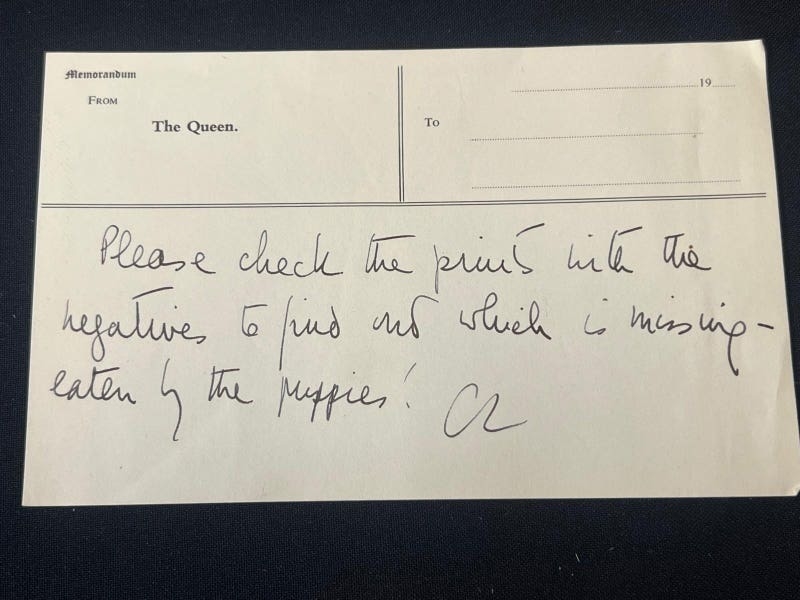 Memorandum
FROM
The Queen.
19
To
Please check the prints with the
negatives to find out which is missing –
eaten by the puppies!